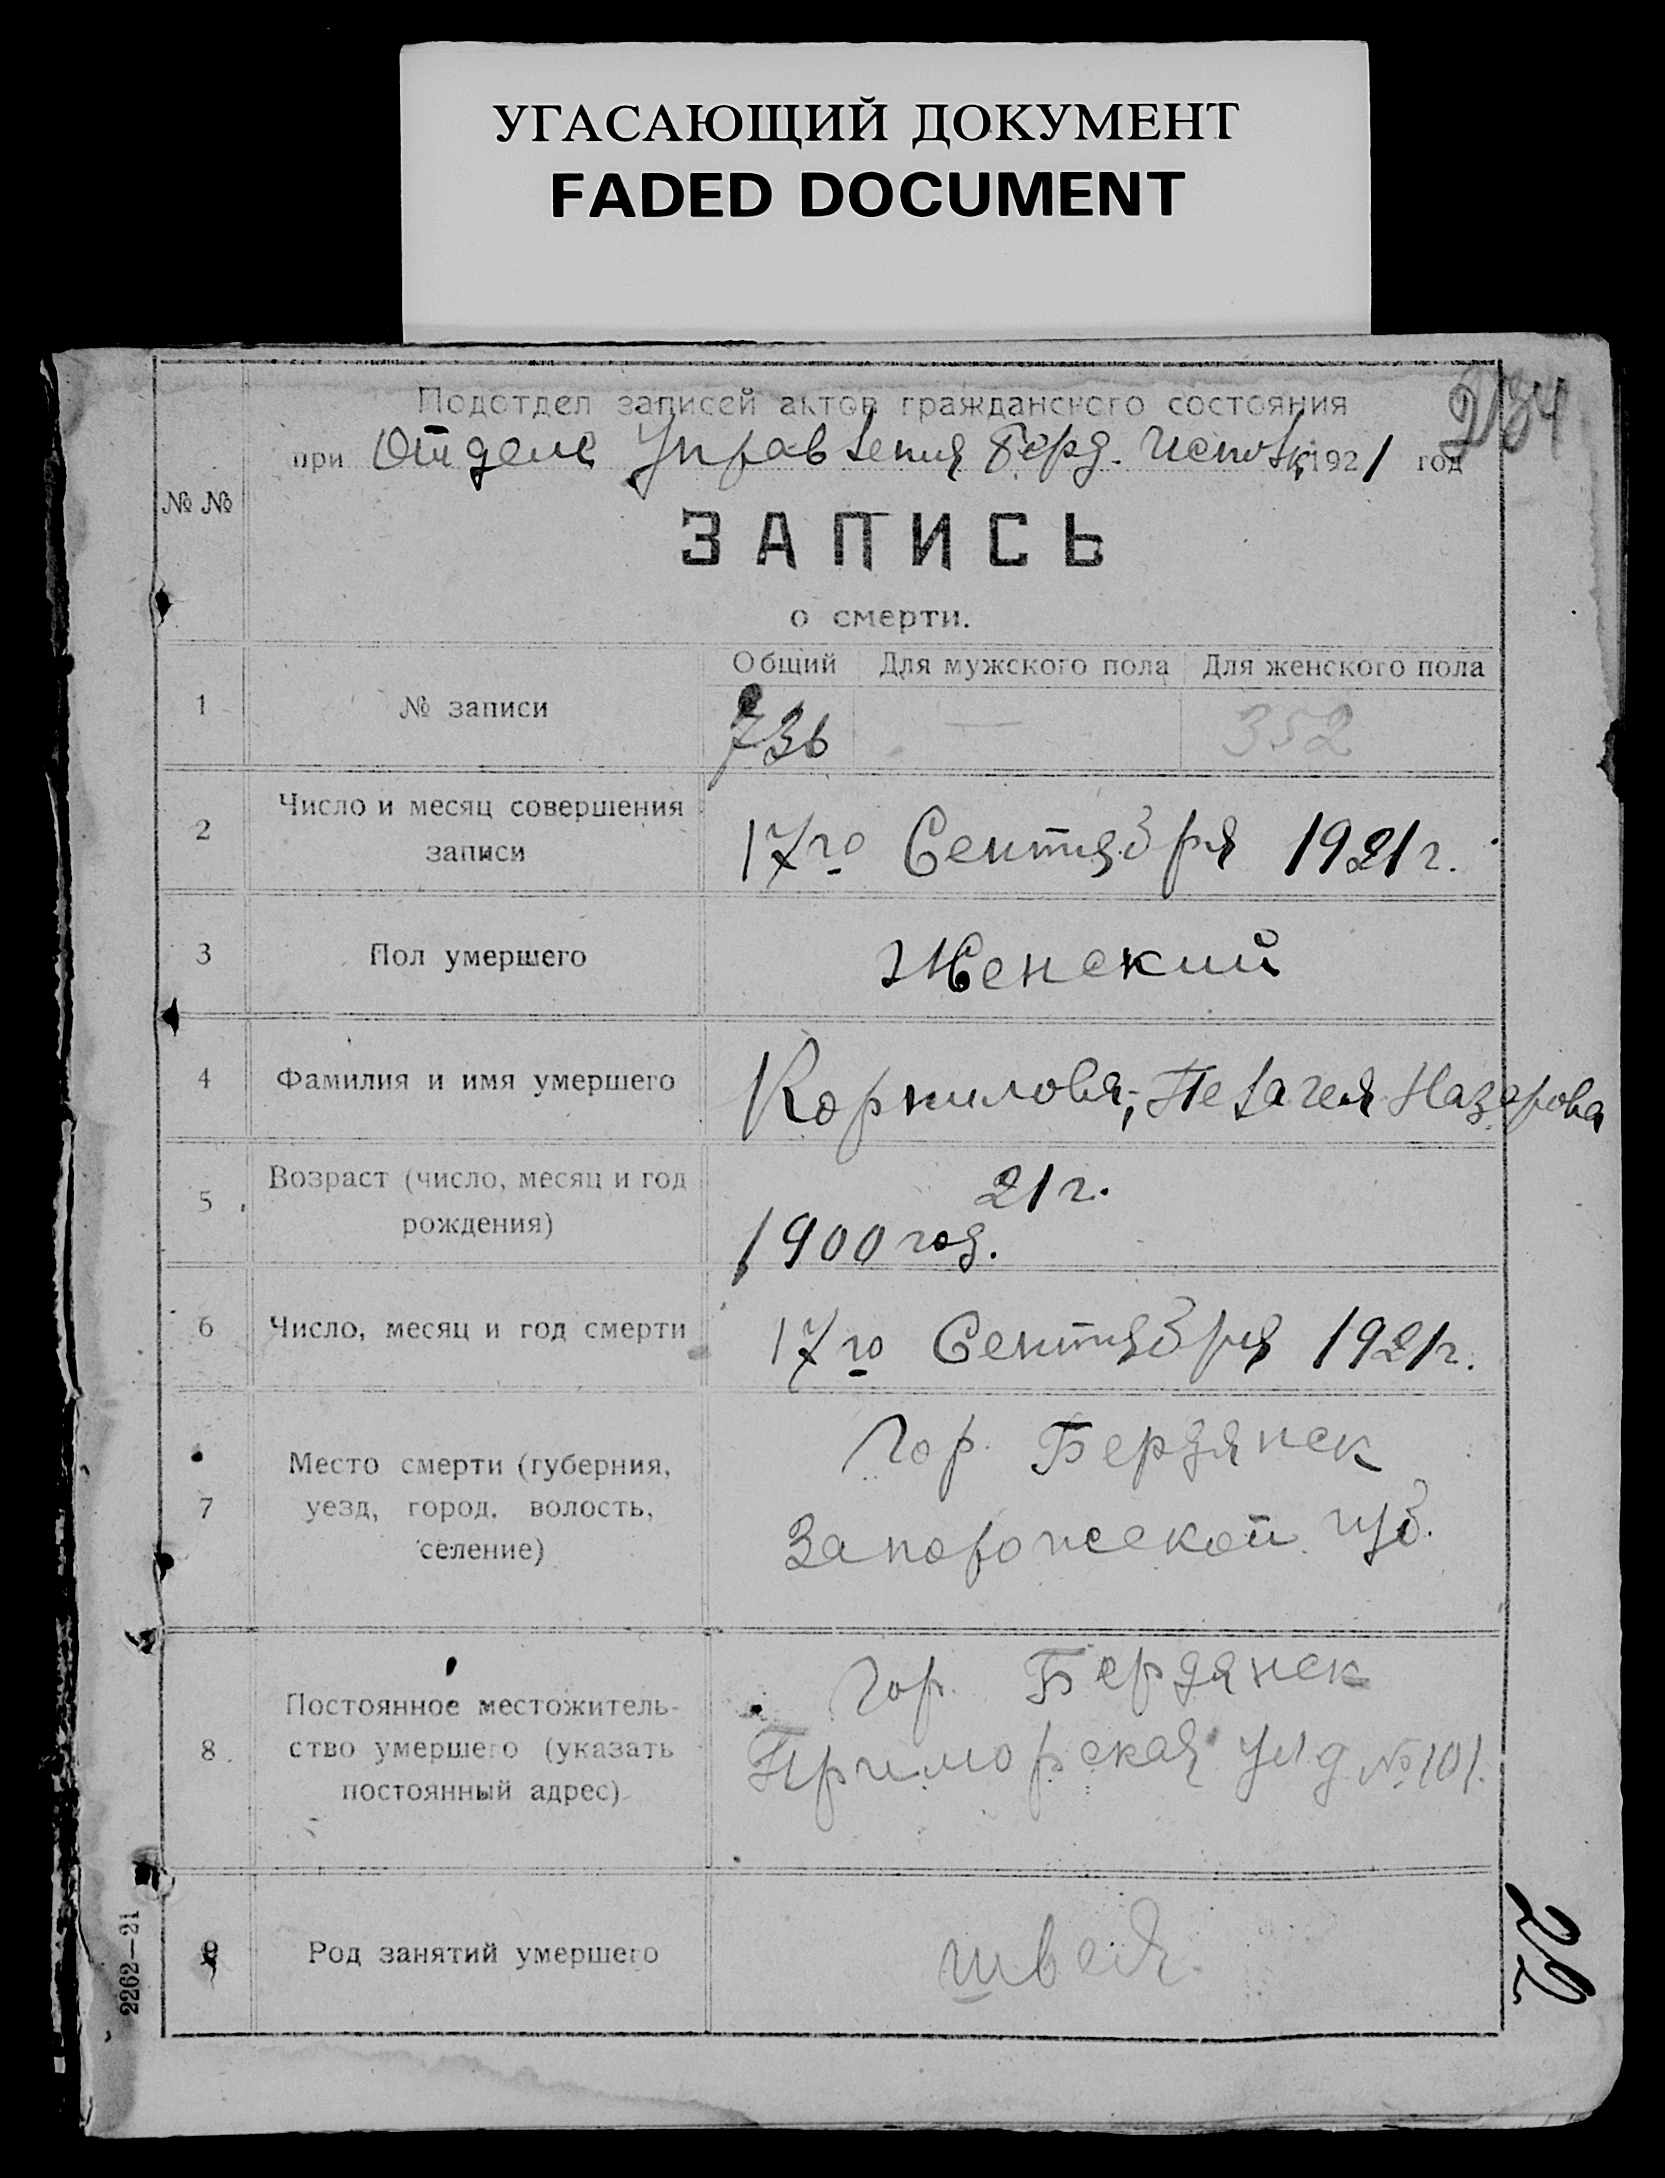 УГАСАЮЩИЙ ДОКУМЕНТ
FADED DOCUMENT
234
Подотдел записей актов гражданского состояния
при Отделе Управления Берд. Исполк. 1921 год
№ №
ЗАПИСЬ
о смерти.
Общий Для мужского пола Для женского пола
1 № записи 736 — 352
2 Число и месяц совершения
записи
17го Сентября 1921 г.
3 Пол умершего Женский
4 Фамилия и имя умершего Корнилова, Пелагея Назарова
5 Возраст (число, месяц и год
рождения)
21 г.
1900 год.
6 Число, месяц и год смерти 17го Сентября 1921 г.
7 Место смерти (губерния,
уезд, город, волость,
селение)
Гор. Бердянск
Запорожской губ.
8 Постоянное местожитель-
ство умершего (указать
постоянный адрес)
Гор. Бердянск
Приморская ул д № 101.
9 Род занятий умершего швея.
2262—21
22